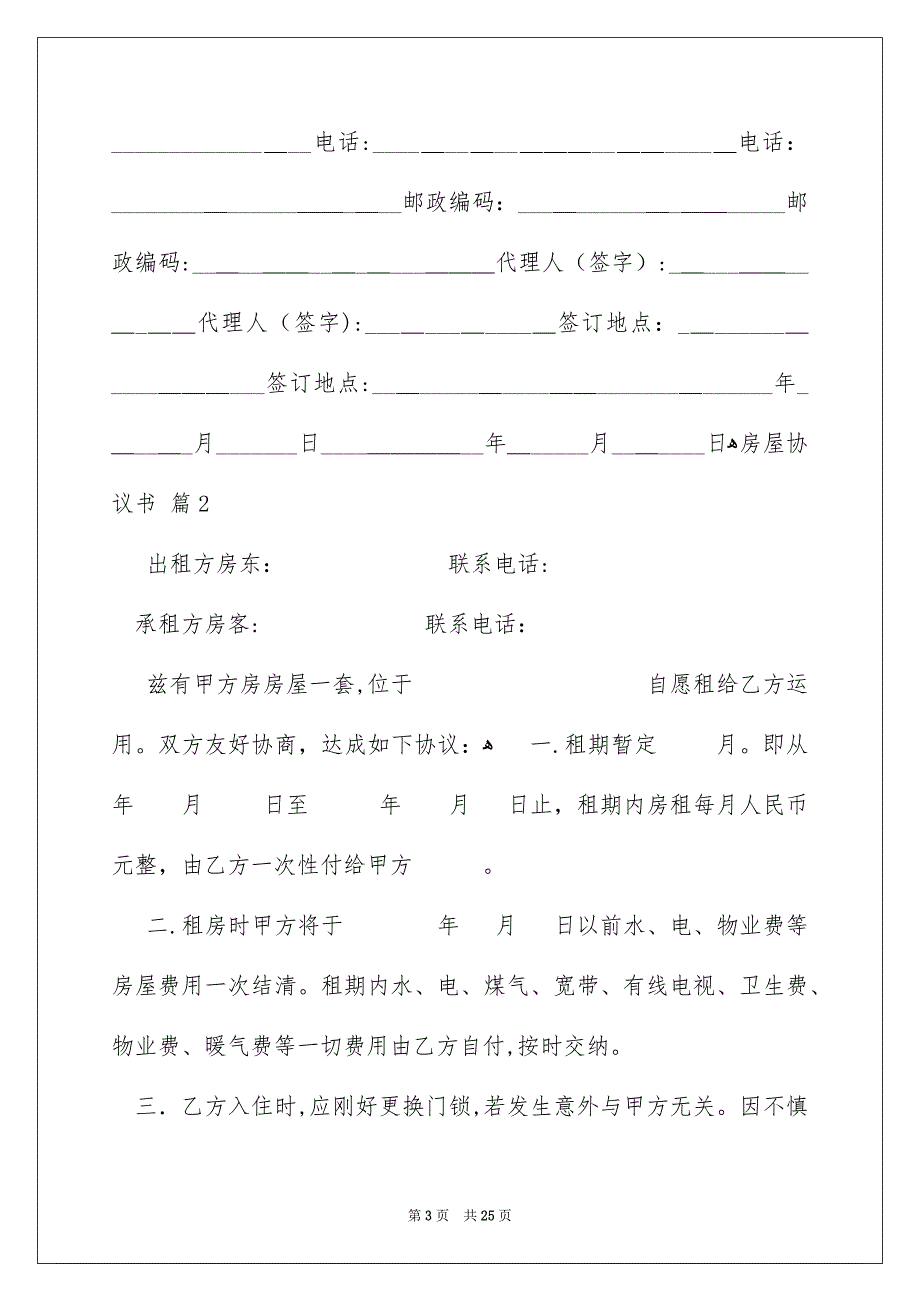 _________________电话:______________________________电话：
________________________邮政编码：______________________邮
政编码:_________________________代理人（签字）:____________
_______代理人（签字):________________签订地点：___________
_____________签订地点:_________________________________年_
_______月_______日______________年_______月________日ﻫ房屋协
议书 篇2
出租方房东： 联系电话:
承租方房客: 联系电话：
兹有甲方房房屋一套,位于 自愿租给乙方运
用。双方友好协商，达成如下协议：ﻫ 一.租期暂定 月。即从
年 月 日至 年 月 日止，租期内房租每月人民币
元整，由乙方一次性付给甲方 。
二.租房时甲方将于 年 月 日以前水、电、物业费等
房屋费用一次结清。租期内水、电、煤气、宽带、有线电视、卫生费、
物业费、暖气费等一切费用由乙方自付,按时交纳。
三．乙方入住时,应刚好更换门锁,若发生意外与甲方无关。因不慎
第 3 页 共 25 页